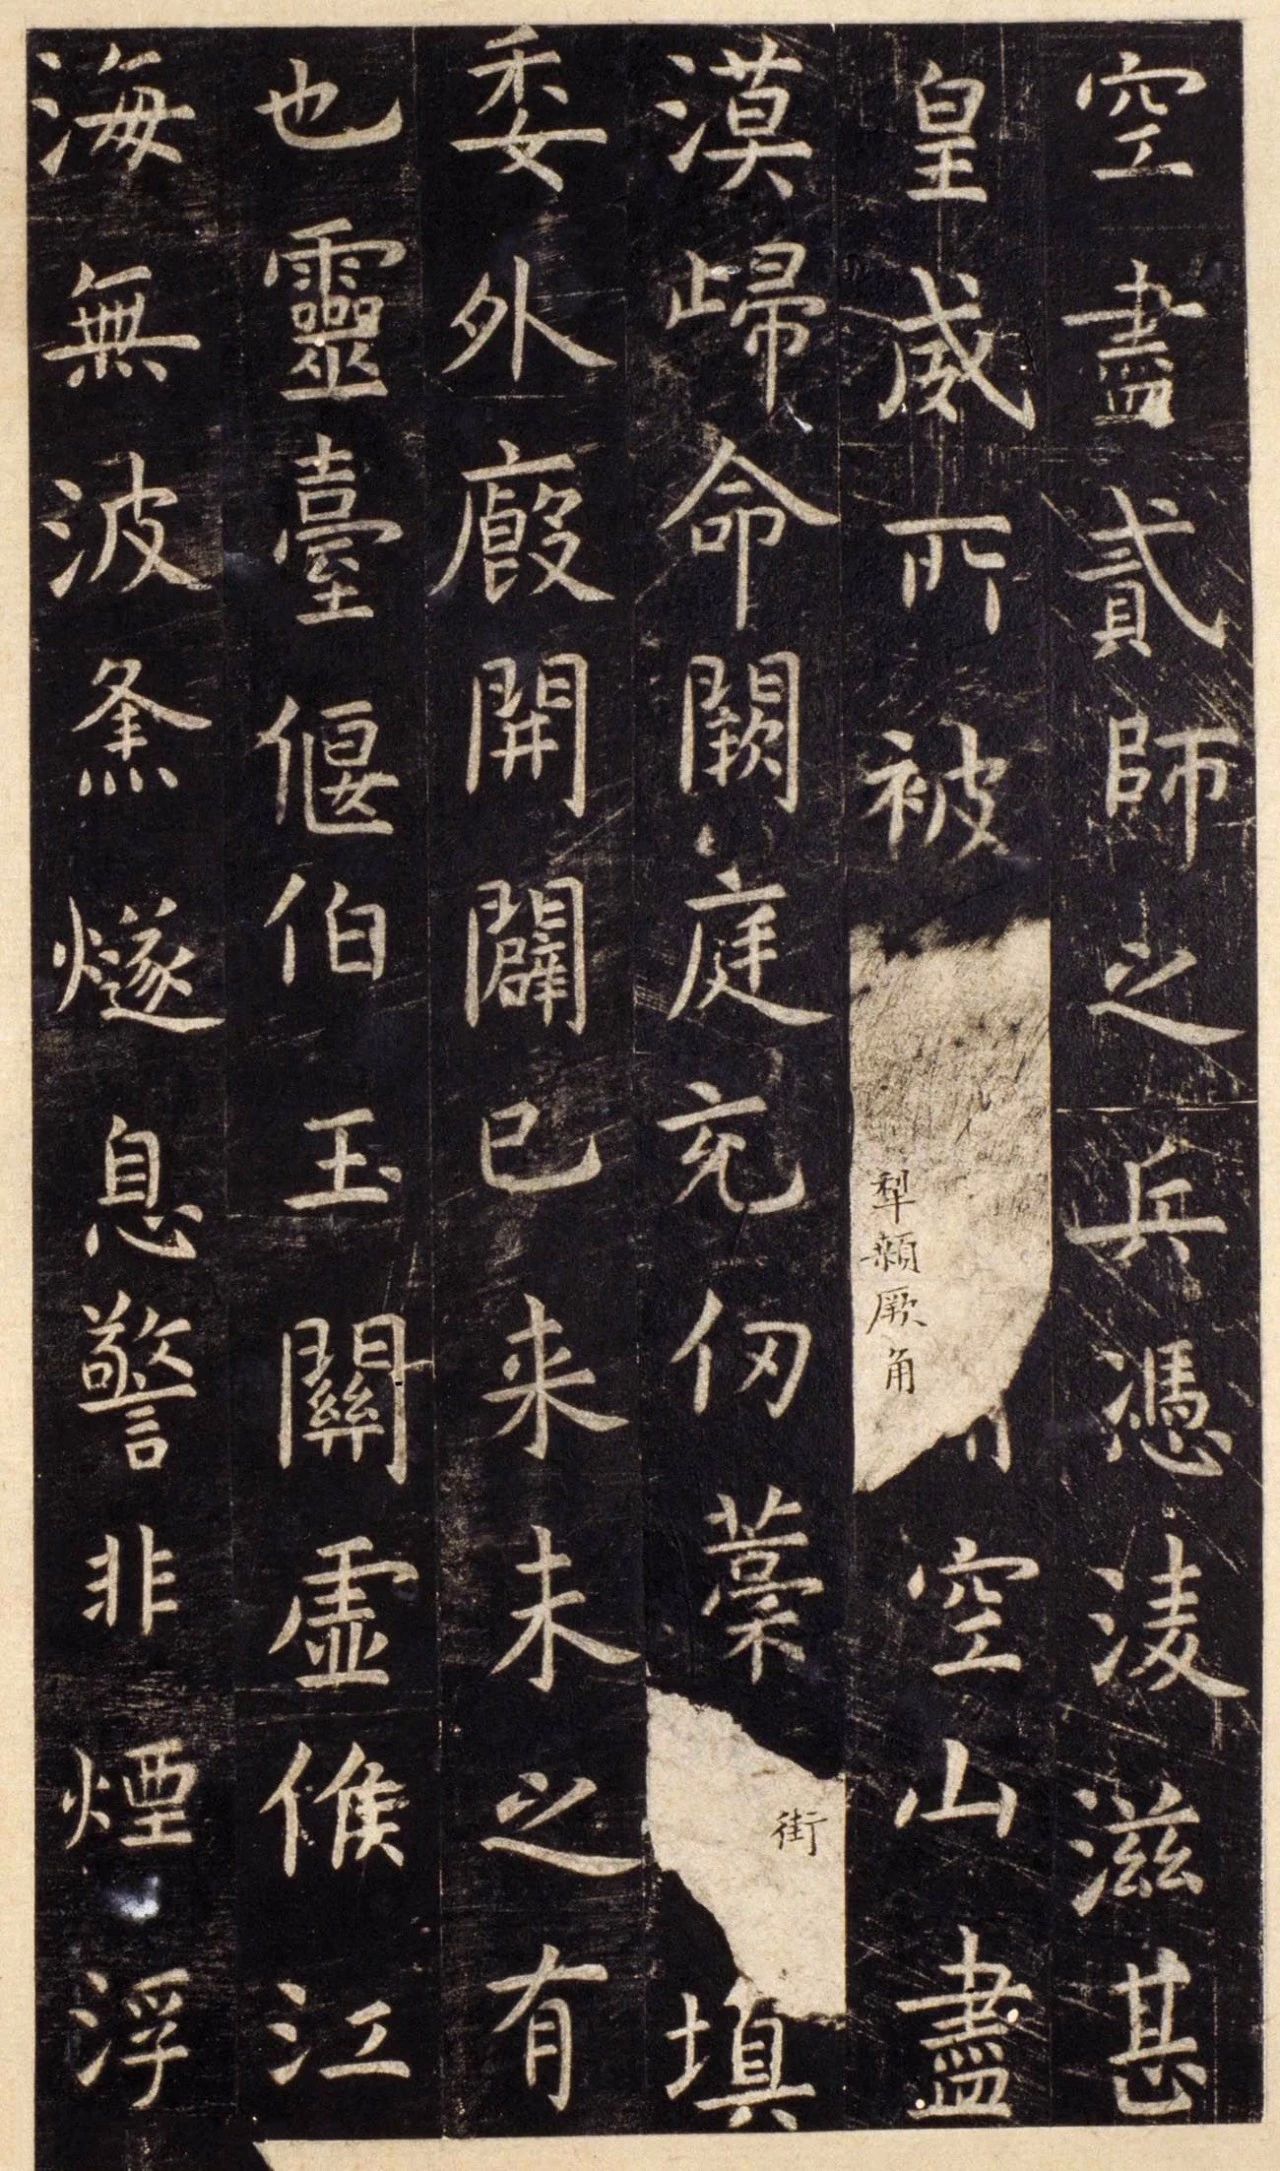 空盡貳師之兵憑淩滋甚
皇威所被犁顙厥角空山盡
漠歸命闕庭充仞藁街填
委外廄開闢已来未之有
也靈臺偃伯玉關虛候江
海無波烽燧息警非煙浮